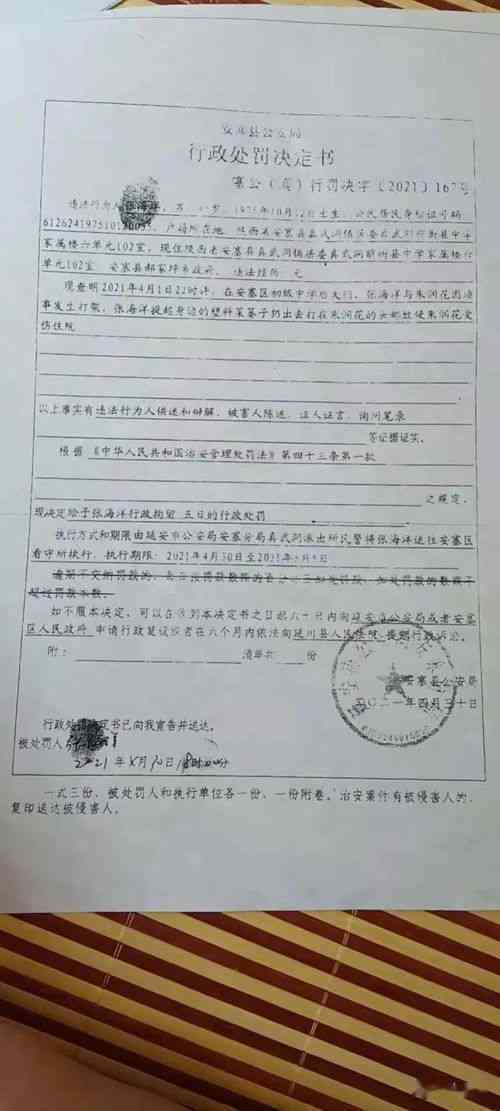 安塞县公安局
行政处罚决定书
塞公（真）行罚决字〔2021〕167号
违法行为人张海洋，男，1975年10月12日出生，公民居民身份证号码
家属楼六单元102室，现住陕西省安塞县真武洞镇
单元102室，安塞县郝家坪乡政府，违法经历：无
现查明2021年4月1日22时许，在安塞区初级中学后大门，张海洋与朱润花因琐
事发生打架，张海洋提起身边的塑料菜篓子扔出去打在朱润花的头部致使朱润花受
伤住院
以上事实有违法行为人供述和辩解、被害人陈述、证人证言、询问笔录
等证据证实。
根据《中华人民共和国治安管理处罚法》第四十三条第一款
之规定，
现决定给予张海洋行政拘留 五日的行政处罚
执行方式和期限由延安市公安局安塞分局真武洞派出所民警将张海洋送往安塞区
看守所执行，执行期限：2021年4月30日至2021年5月5日
逾期不交纳罚款的，每日按罚款数额的百分之三加处罚款，加处罚款的数额不
超过罚款本数。
如不服本决定，可以在收到本决定书之日起六十日内向延安市公安局或者安塞
区人民政府 申请行政复议或者在六个月内依法向延川县人民法院 提起行政诉讼。
附： 清单共 份
安塞县公安局
二〇二一年四月三十日
行政处罚决定书已向我宣告并送达。
被处罚人
2021年
一式三份，被处罚人和执行单位各一份，一份附卷。治安案件有被侵害人的，
复印送达被侵害人。